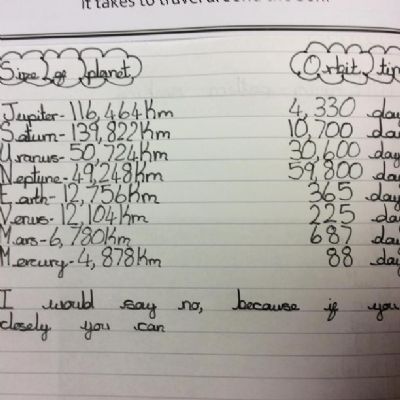 it takes to travel around the sun.
Size of planet Orbit tim
Jupiter - 116,464Km 4,330 day
Saturn - 139,822Km 10,700 day
Uranus - 50,724Km 30,600 day
Neptune - 49,248Km 59,800 day
Earth - 12,756Km 365 day
Venus - 12,104Km 225 day
Mars - 6,780Km 687 day
Mercury - 4,878Km 88 day
I would say no, because if you
closely you can